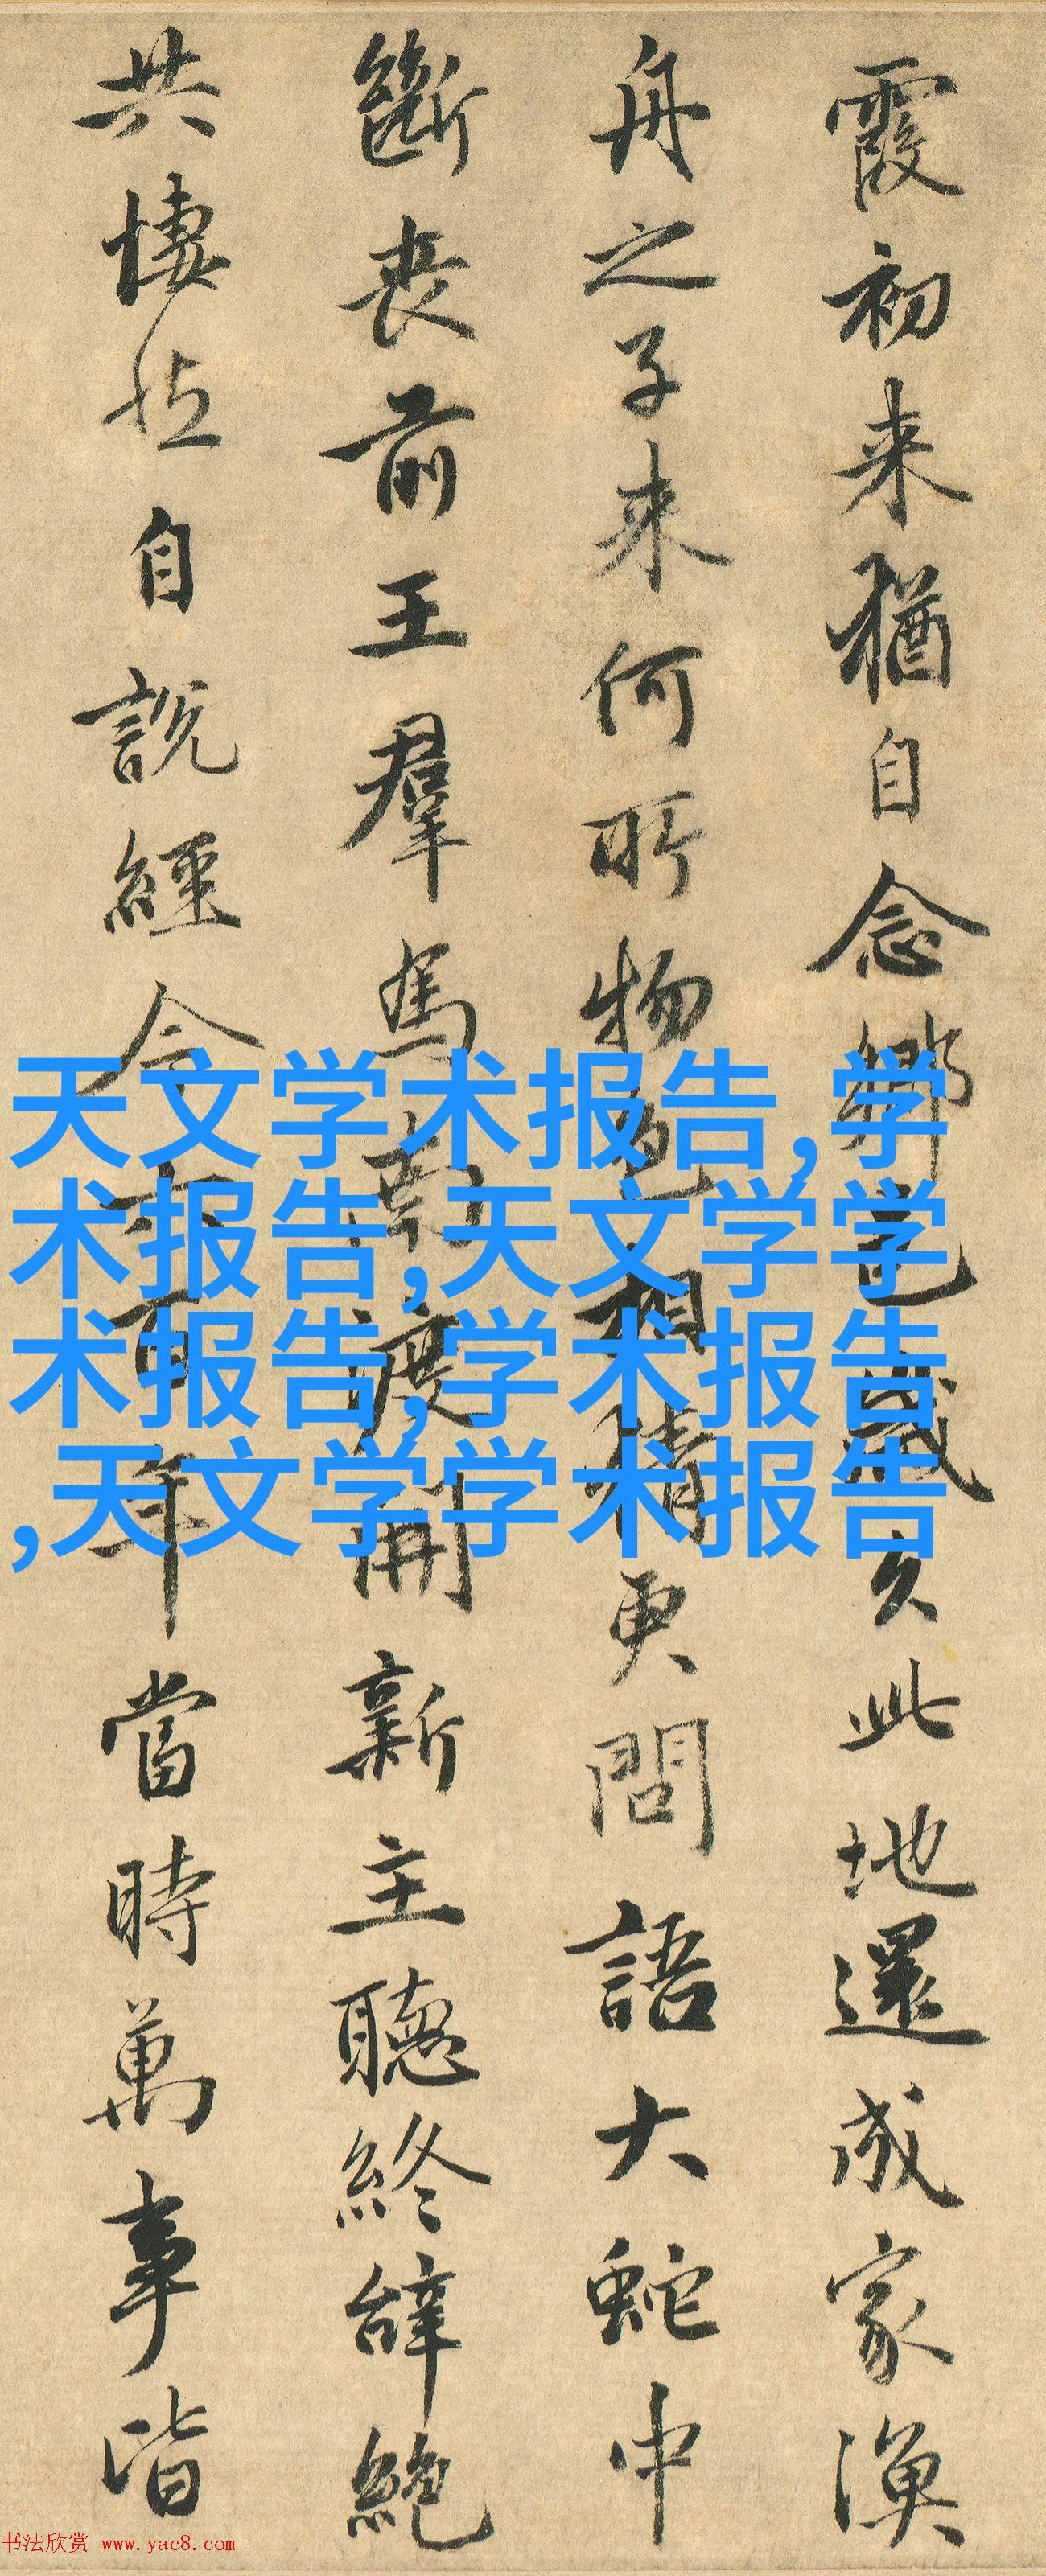 霞初来猶自念鄉邑歲久此地還成家漁
舟之子来何所物色相猜更問語大蛇中
斷喪前王羣馬南渡開新主聽終辭絶
共悽然自說經今六百年當時萬事皆
天文学术报告,学
术报告,天文学学
术报告,学术报告
,天文学学术报告
书法欣赏 www.yac8.com